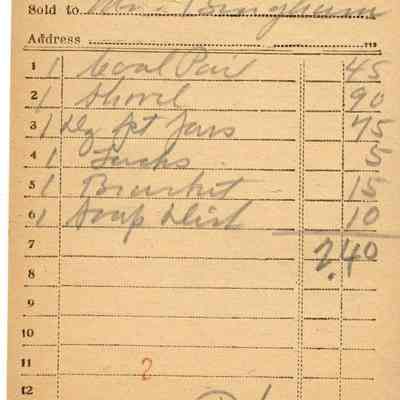 Sold to Mr. Bingham
Address
1 1 Coal Pail 45
2 1 Shovel 90
3 1 Dz pt Jars 75
4 1 Tacks 5
5 1 Bracket 15
6 1 Soap Dish 10
7 2.40
8
9
10
11 2
12